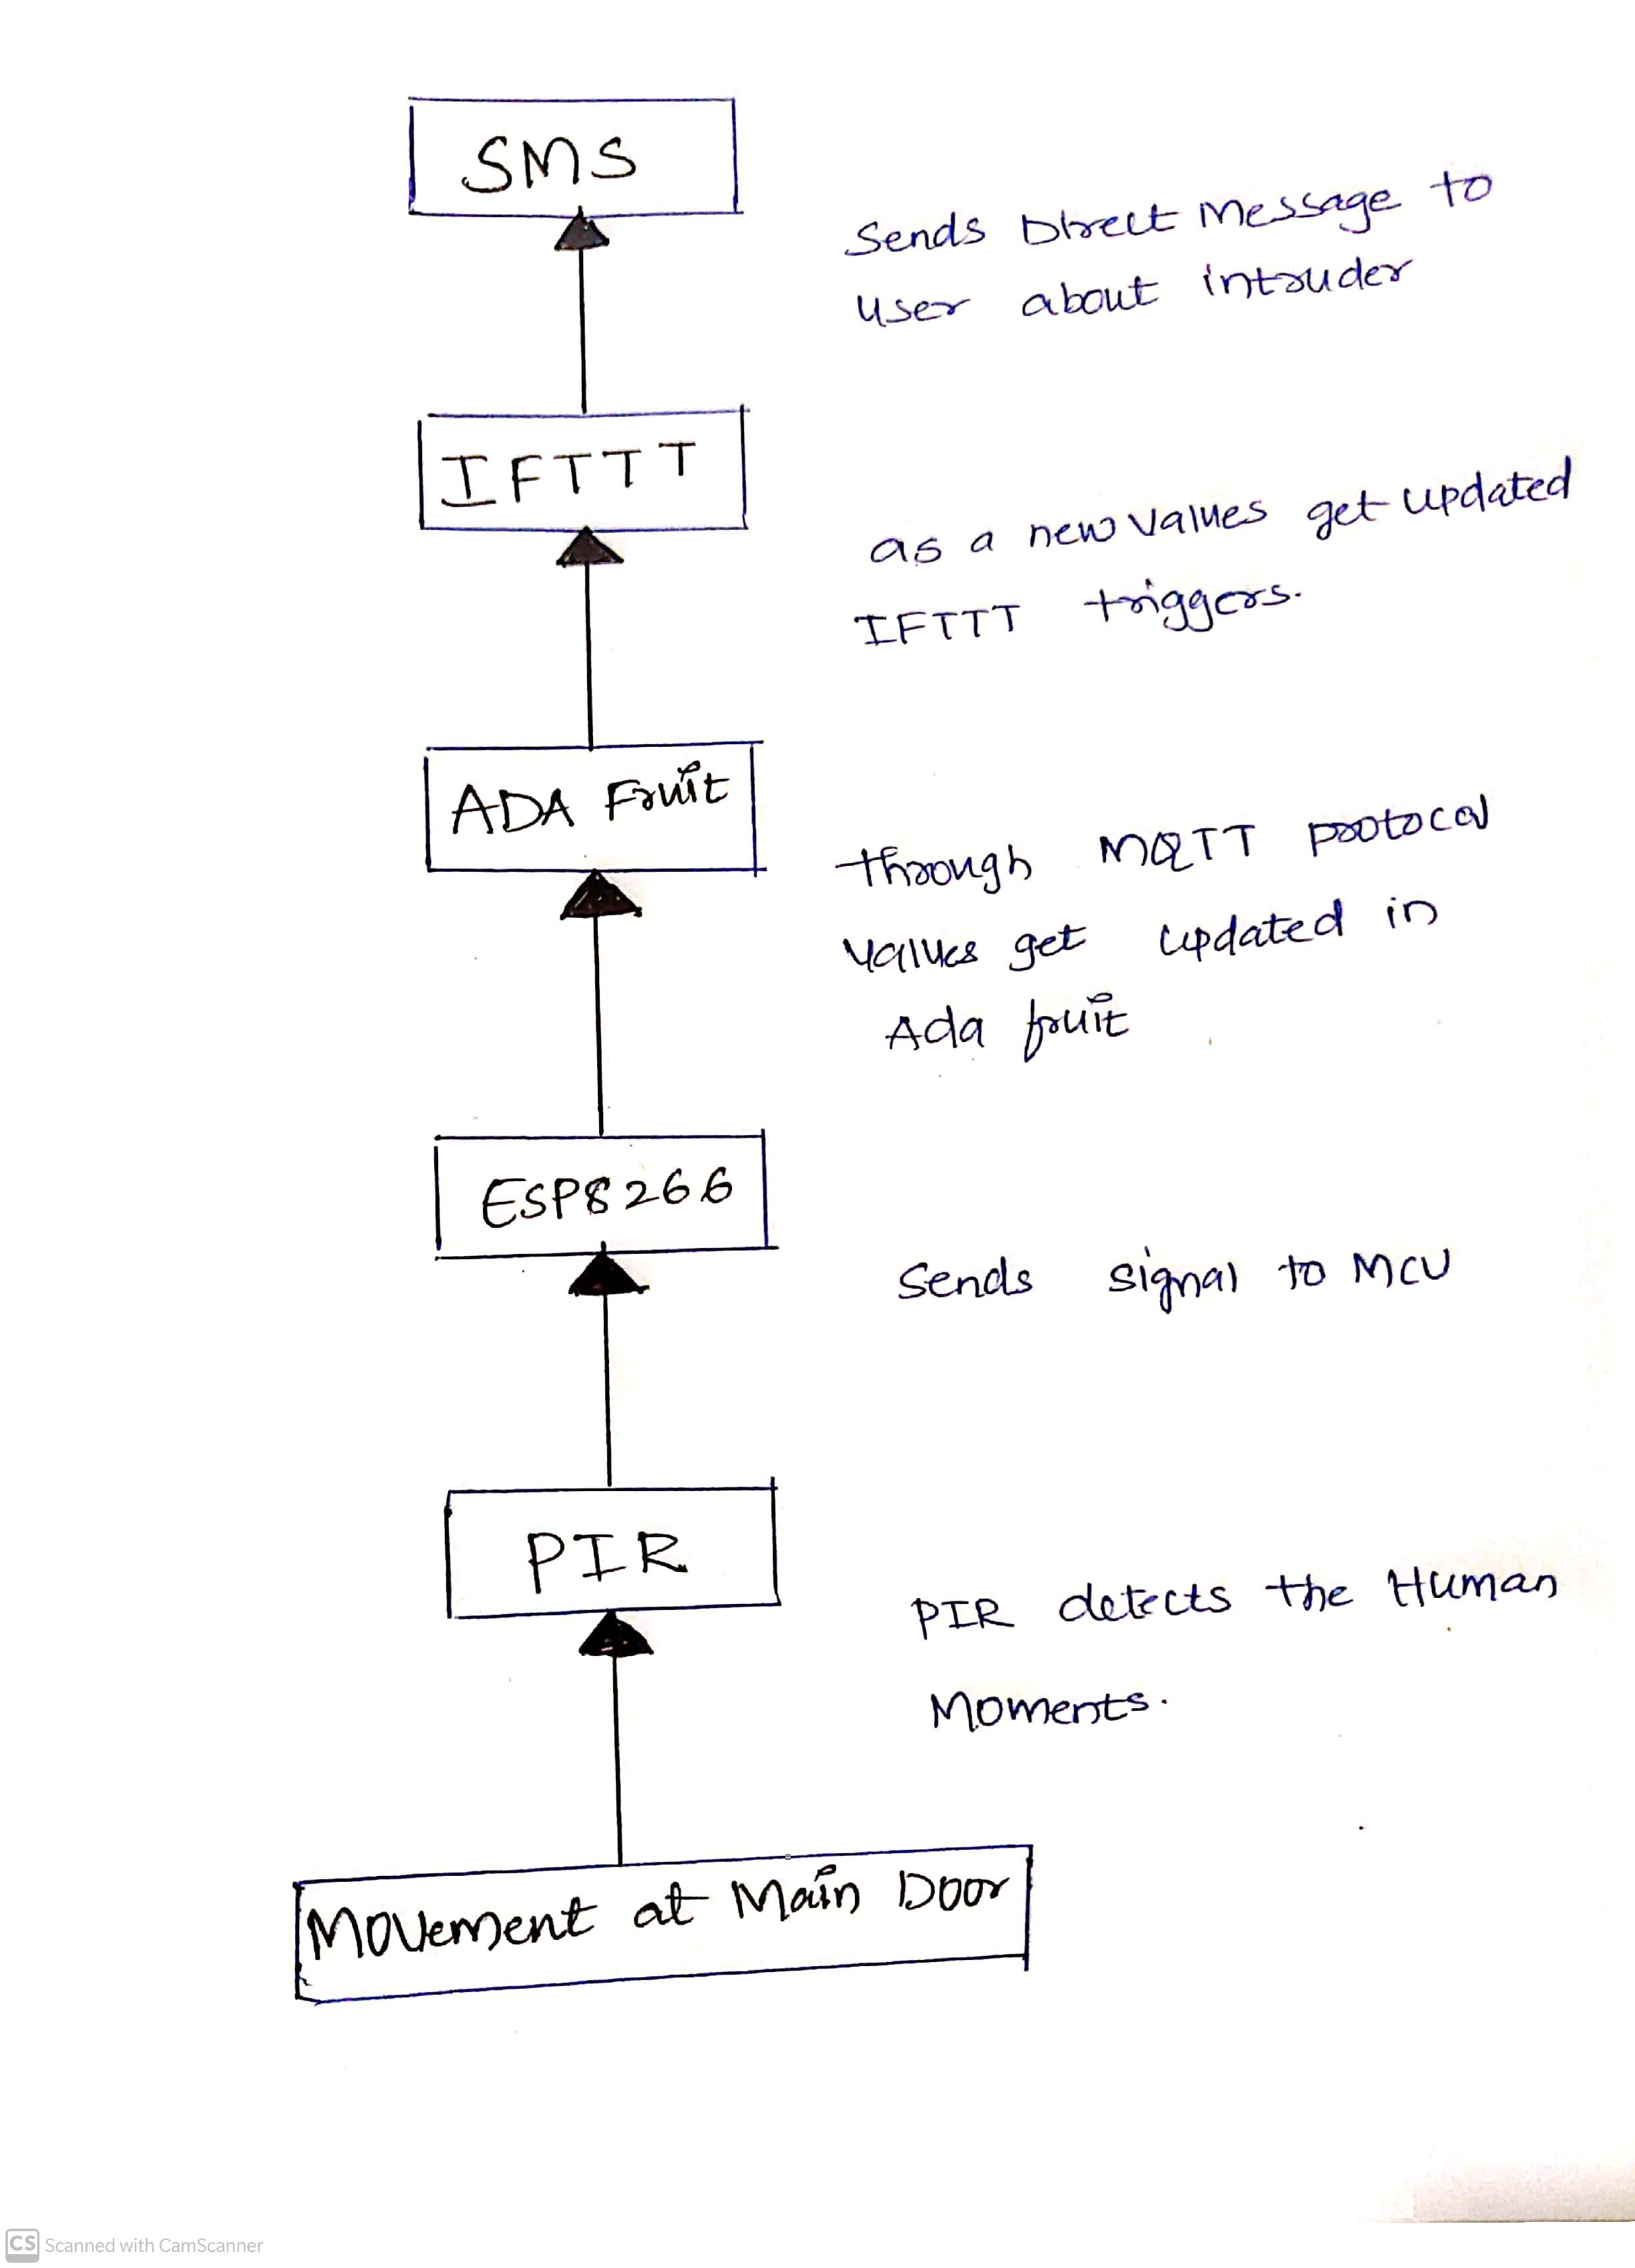 SMS
Sends Direct Message to
user about intruder
IFTTT
as a new values get updated
IFTTT triggers.
ADA Fruit
through MQTT protocol
values get updated in
Ada fruit
ESP8266
Sends signal to MCU
PIR
PIR detects the Human
Moments.
Movement at Main Door
CS Scanned with CamScanner